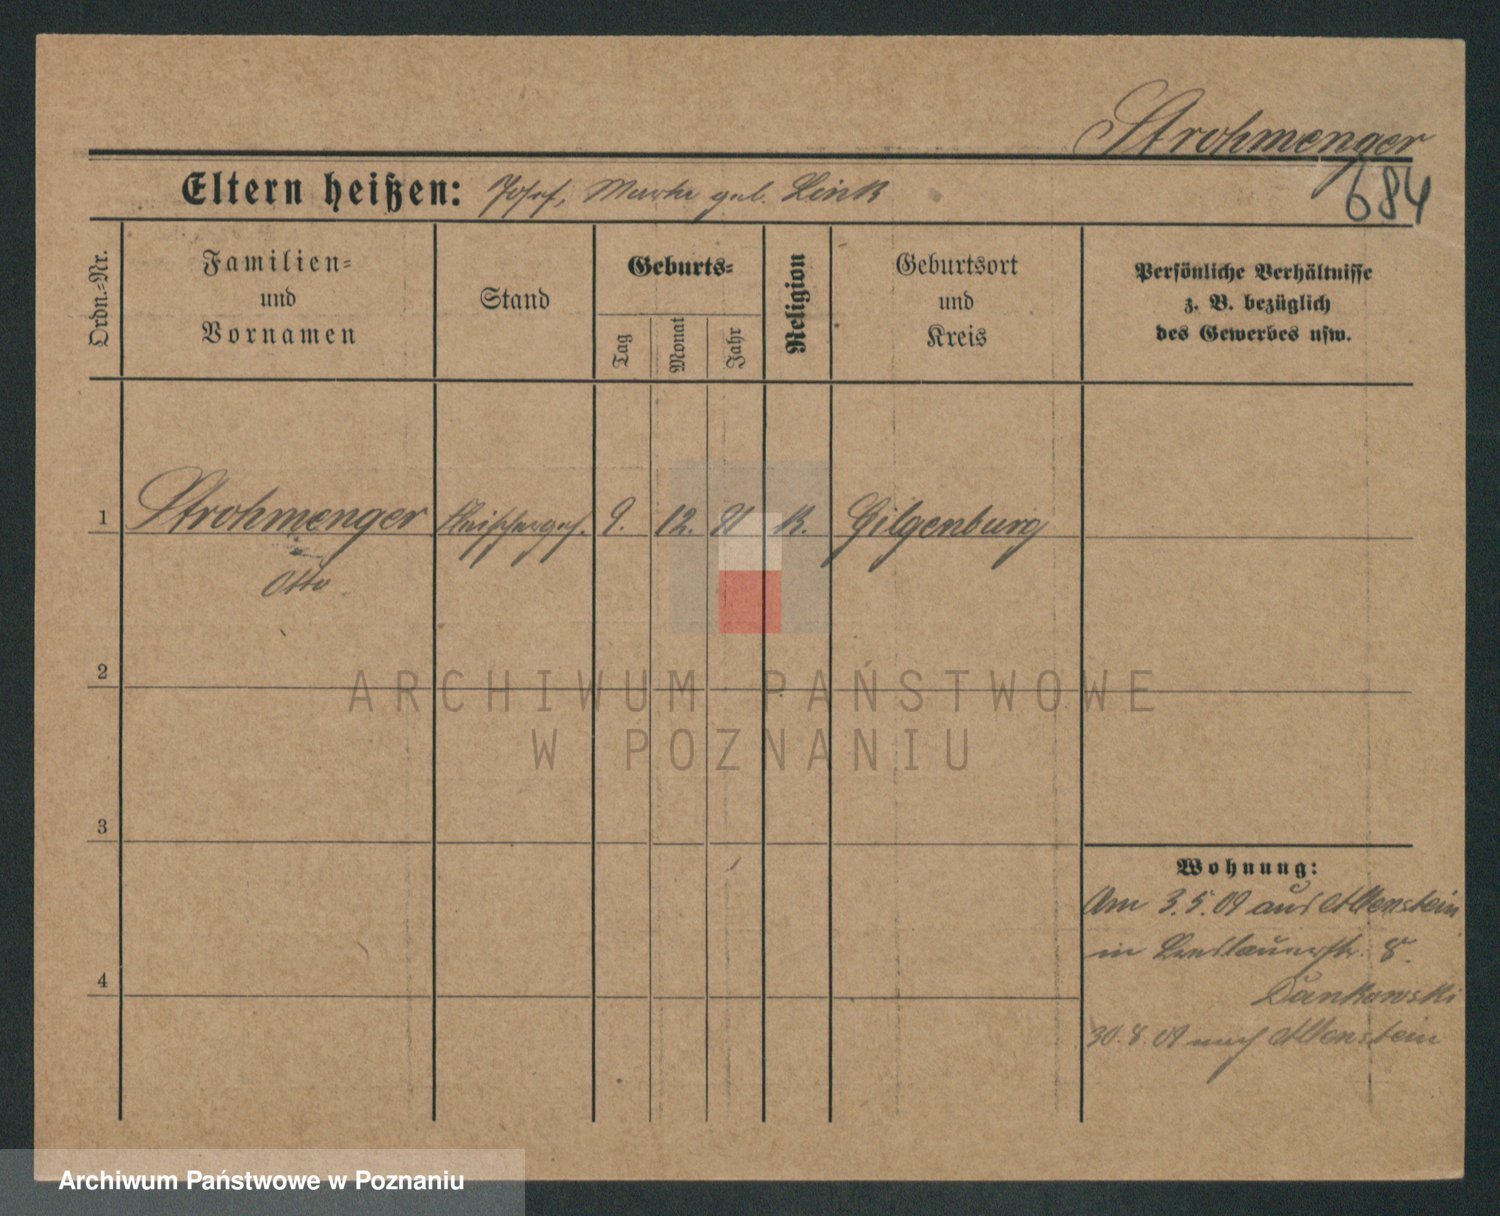 Strohmenger
684
Eltern heißen: Josef, Marke geb. Link
Ordn.-Nr.
Familien-
und
Vornamen
Stand
Geburts-
Tag
Monat
Jahr
Religion
Geburtsort
und
Kreis
Persönliche Verhältnisse
z. B. bezüglich
des Gewerbes usw.
1 Strohmenger Fleischerges. 9. 12. 81 K. Gilgenburg
Otto
2
3
4
Wohnung:
Am 3.5.09 aus Allenstein
in Breslauerstr. 8.
Dankowski
30.8.09 nach Allenstein
ARCHIWUM PAŃSTWOWE
W POZNANIU
Archiwum Państwowe w Poznaniu